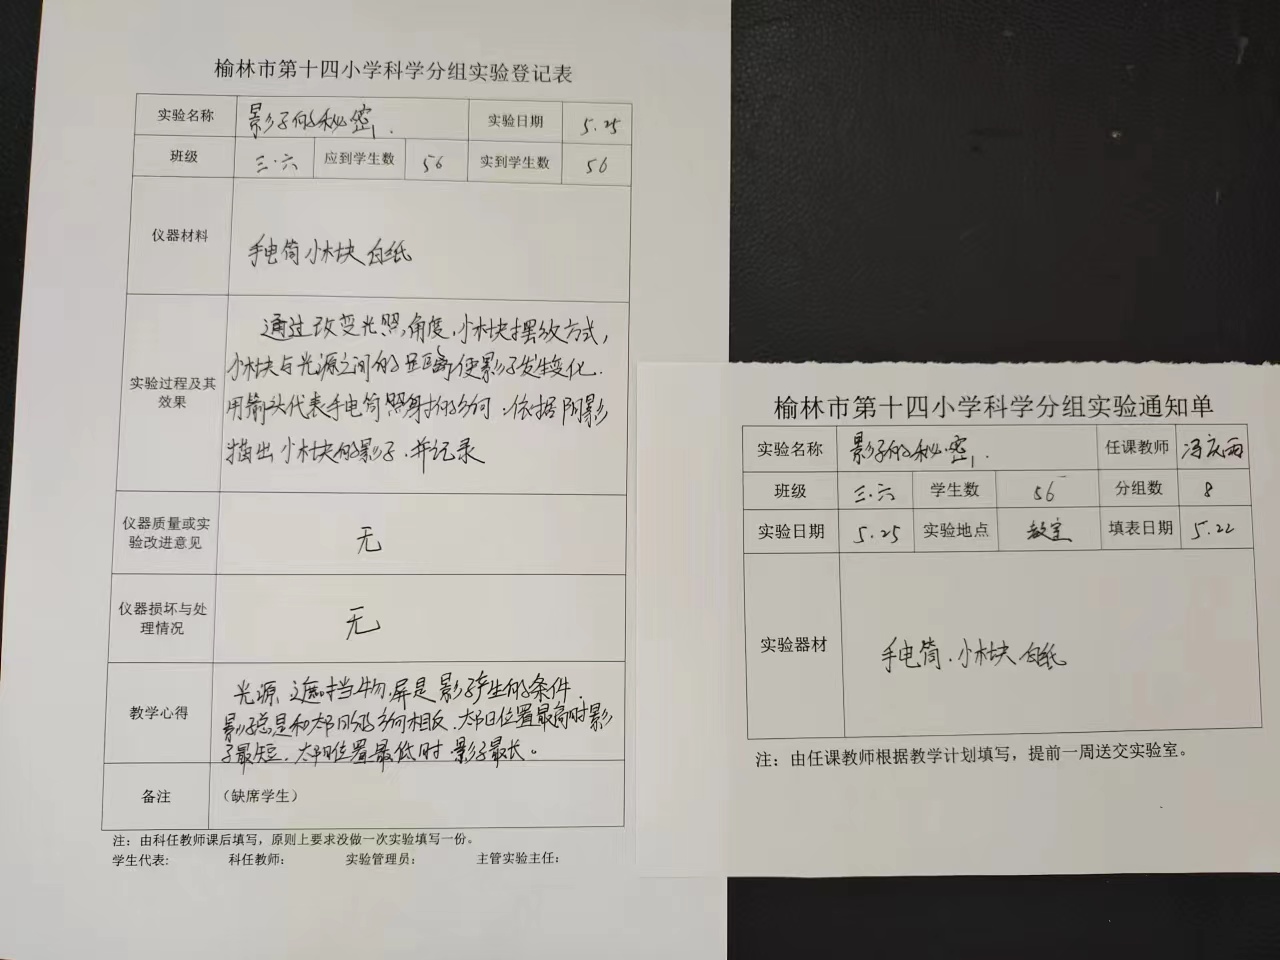 榆林市第十四小学科学分组实验登记表
实验名称 影子的秘密. 实验日期 5.25
班级 三.六 应到学生数 56 实到学生数 56
仪器材料 手电筒 小木块 白纸
实验过程及其效果
通过改变光照角度.小木块摆放方式,
小木块与光源之间的距离使影子发生变化.
用箭头代表手电筒照射的方向.依据阴影
描出小木块的影子.并记录
仪器质量或实验改进意见 无
仪器损坏与处理情况 无
教学心得
光源.遮挡物.屏是影子产生的条件.
影子总是和太阳的方向相反.太阳位置最高时影
子最短.太阳位置最低时.影子最长。
备注 （缺席学生）
注：由科任教师课后填写，原则上要求没做一次实验填写一份。
学生代表: 科任教师: 实验管理员: 主管实验主任:
榆林市第十四小学科学分组实验通知单
实验名称 影子的秘密. 任课教师 冯庆雨
班级 三.六 学生数 56 分组数 8
实验日期 5.25 实验地点 教室 填表日期 5.22
实验器材 手电筒.小木块 白纸
注：由任课教师根据教学计划填写，提前一周送交实验室。